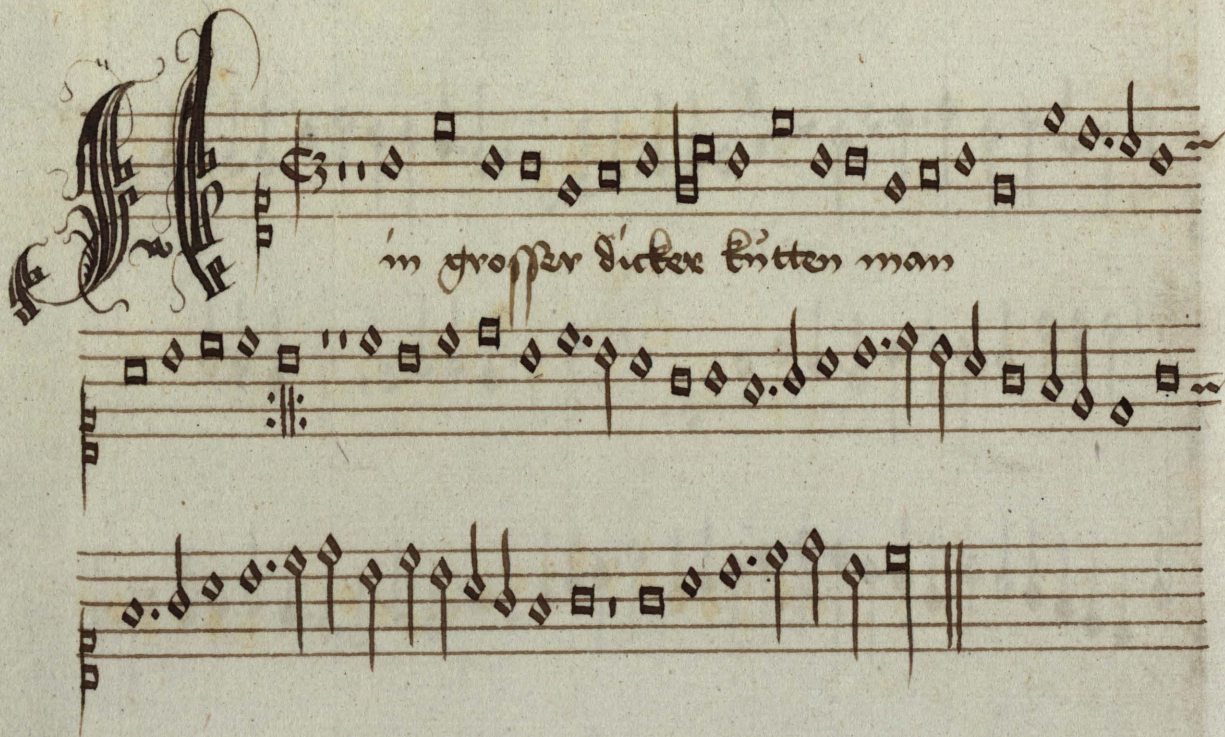 in grosser dicker kütten man